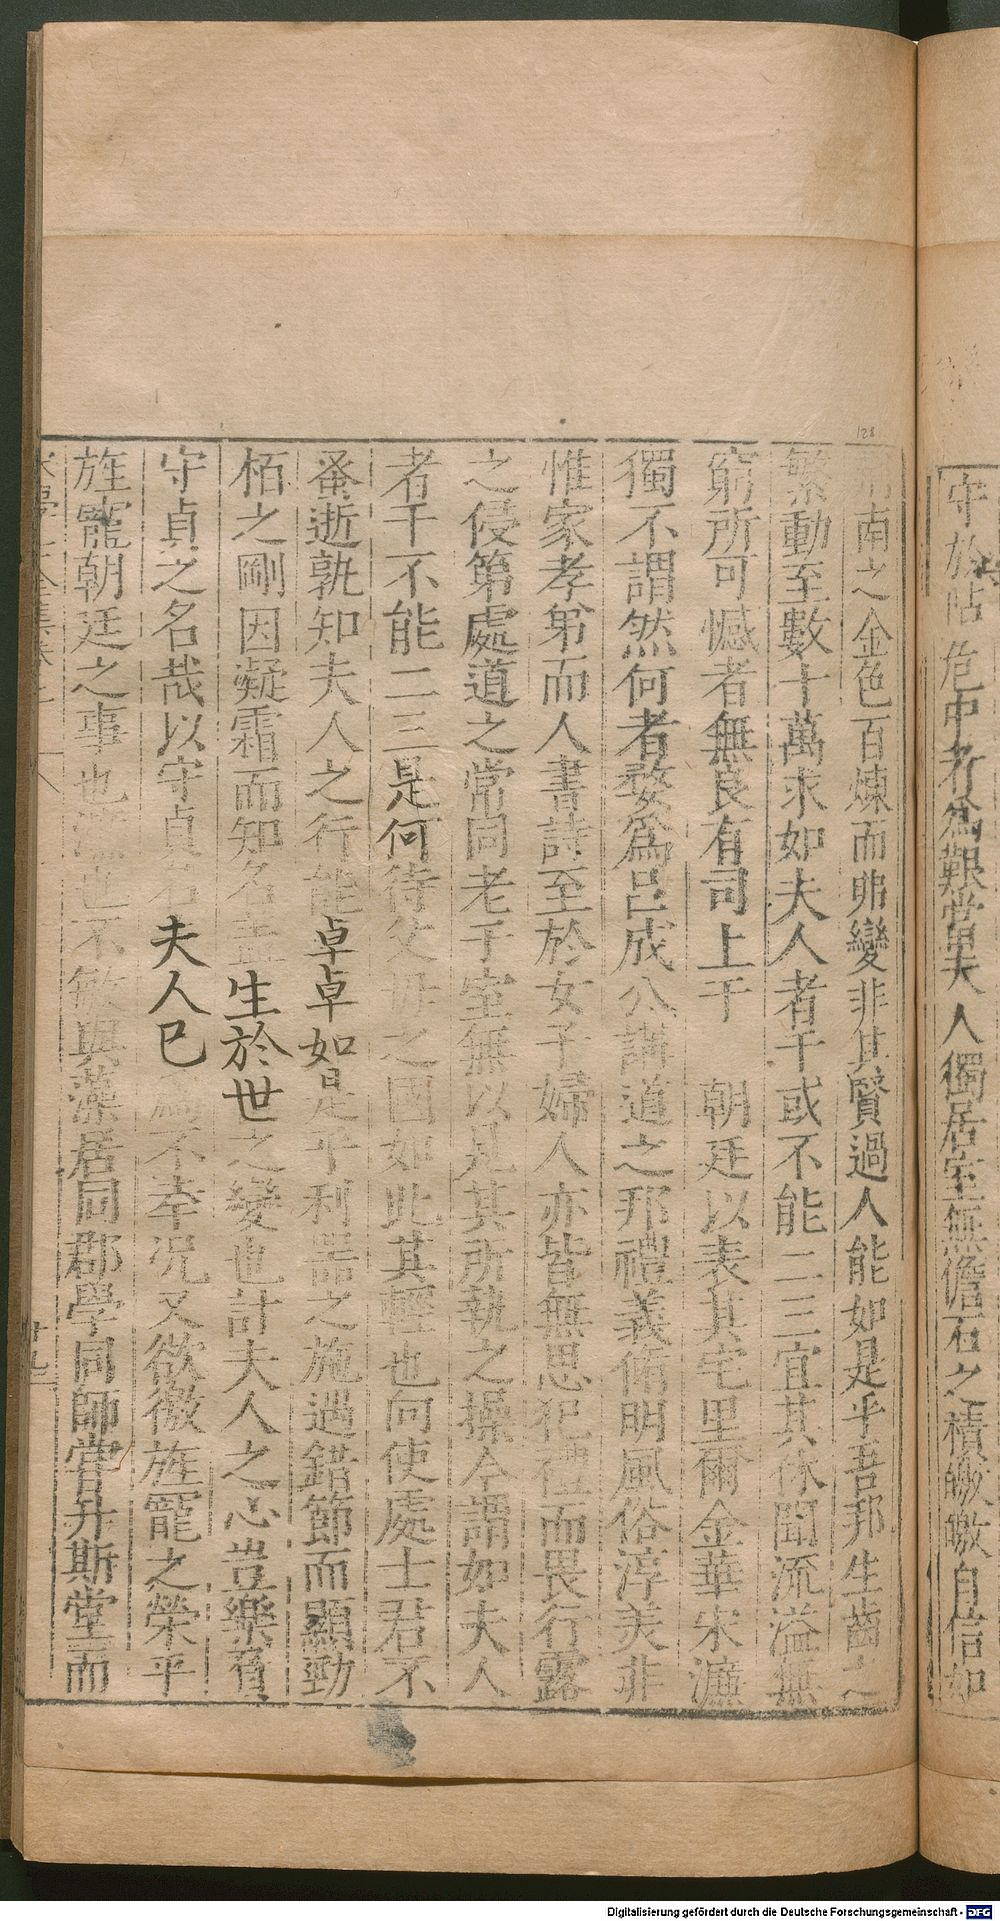 守於阽危中者為艱當夫人獨居室無儋石之積皦皦自信如
南之金色百煉而弗變非其賢過人能如是乎吾邦生齒之
繁動至數十萬求如夫人者千或不能二三宜其休聞流溢無
窮所可憾者無良有司上于 朝廷以表其宅里爾金華宋濂
獨不謂然何者婺為呂成公講道之邦禮義脩明風俗淳美非
惟家孝弟而人書詩至於女子婦人亦皆無思犯禮而畏行露
之侵第處道之常同老于室無以見其所執之操今謂如夫人
者千不能二三是何待父母之國如此其輕也向使處士君不
蚤逝孰知夫人之行能卓卓如是乎利器之施遇錯節而顯勁
栢之剛因凝霜而知名盖生於世之變也計夫人之心豈樂有
守貞之名哉以守貞名夫人已不幸况又欲徼旌寵之榮乎
旌寵朝廷之事也濂也不敏與藻居同郡學同師嘗升斯堂而
128
Digitalisierung gefördert durch die Deutsche Forschungsgemeinschaft - DFG